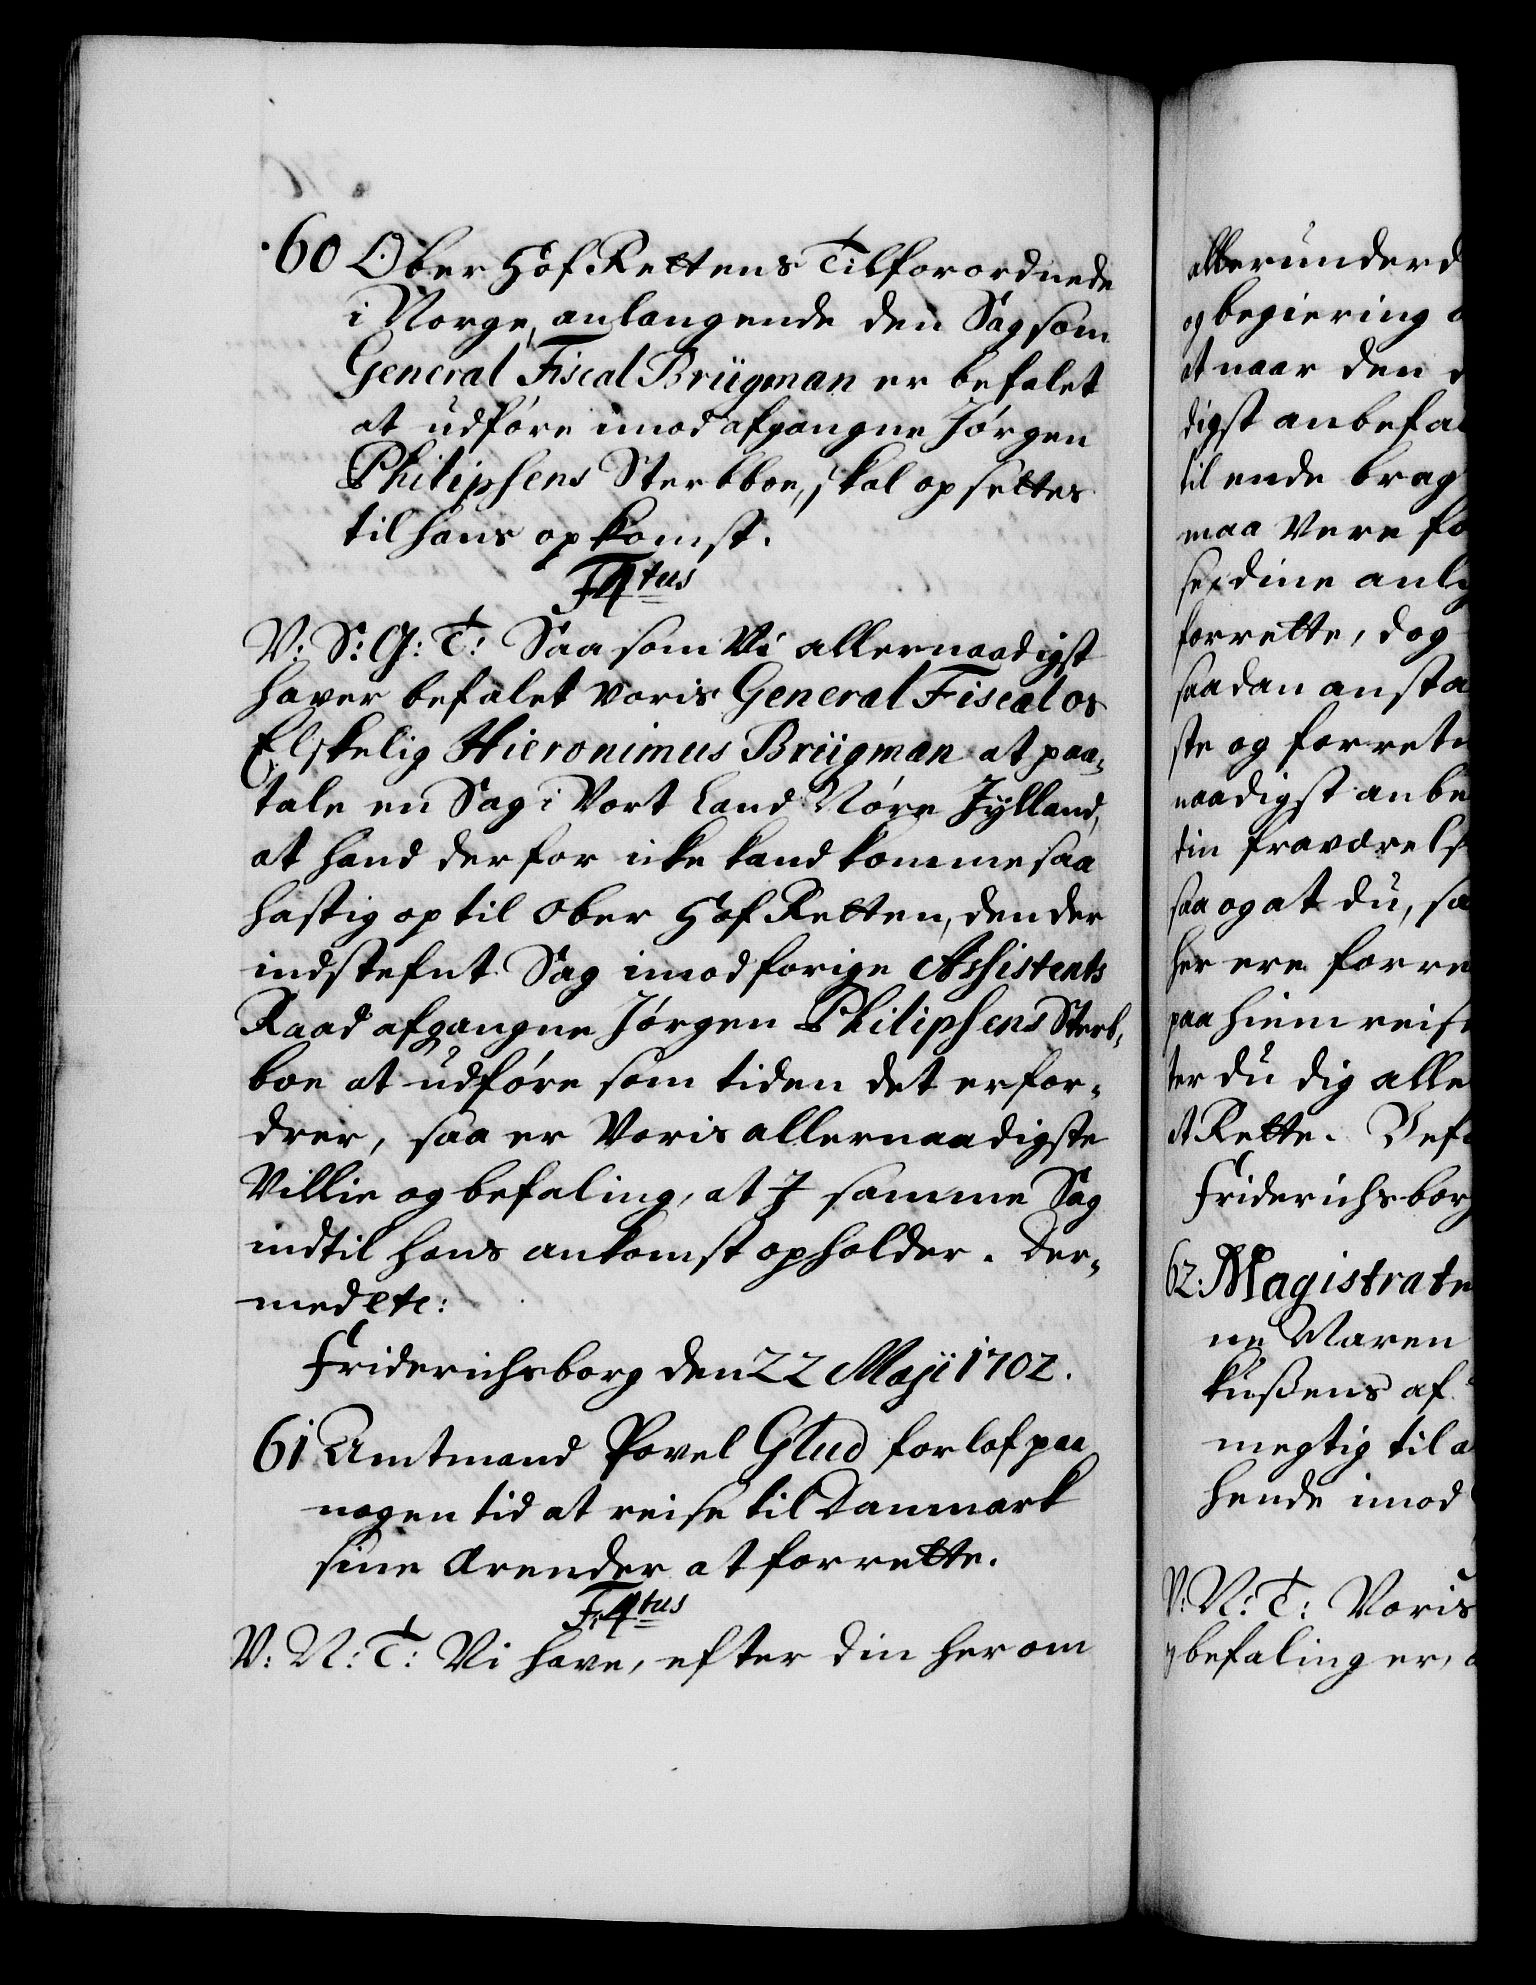 60 Ober Hof Rettens Tilforordnede
i Norge, anlangende den Sag som
General Fiscal Brügman er befalet
at udføre imod afgangne Jørgen
Philipsens Sterbboe, skal opsettes
til hans opkomst.
F 4tus
V: S: G: T: Saasom Vi allernaadigst
haver befalet voris General Fiscal os
Elskelig Hieronimus Brügman at paa-
tale en Sag i Vort Land Nørre Jylland,
at hand derfor icke kand komme saa
hastig op til Ober Hof Retten, den der
indstefnt Sag imod forige Assistents
Raad afgangne Jørgen Philipsens Sterb-
boe at udføre som tiden det erfor-
drer, saa er Voris allernaadigste
Villie og befaling, at I samme Sag
indtil hans ankomst opholder. Der-
med etc:
Friderichsborg den 22 Maji 1702.
61 Amtmand Povel Glud forlof paa
nogen tid at reise til Danmark
sine Ærender at forrette.
F: 4tus
V: N: T: Vi have, efter din herom
allerunderd
og begiering
at naar den
digst anbefal
til ende brag
maa Vere fo
se dine anl
forrette, dog
saadan ansta
ste og forret
naadigst anbe
din fraværels
saa og at du, sa
her ere forre
paa hiemreise
ter du dig alle
at Rette. Befa
Friderichsborg
62: Magistrate
ne Maren
kußens af
megtig til a
hende imod
V: N: T: Voris
befaling er, a